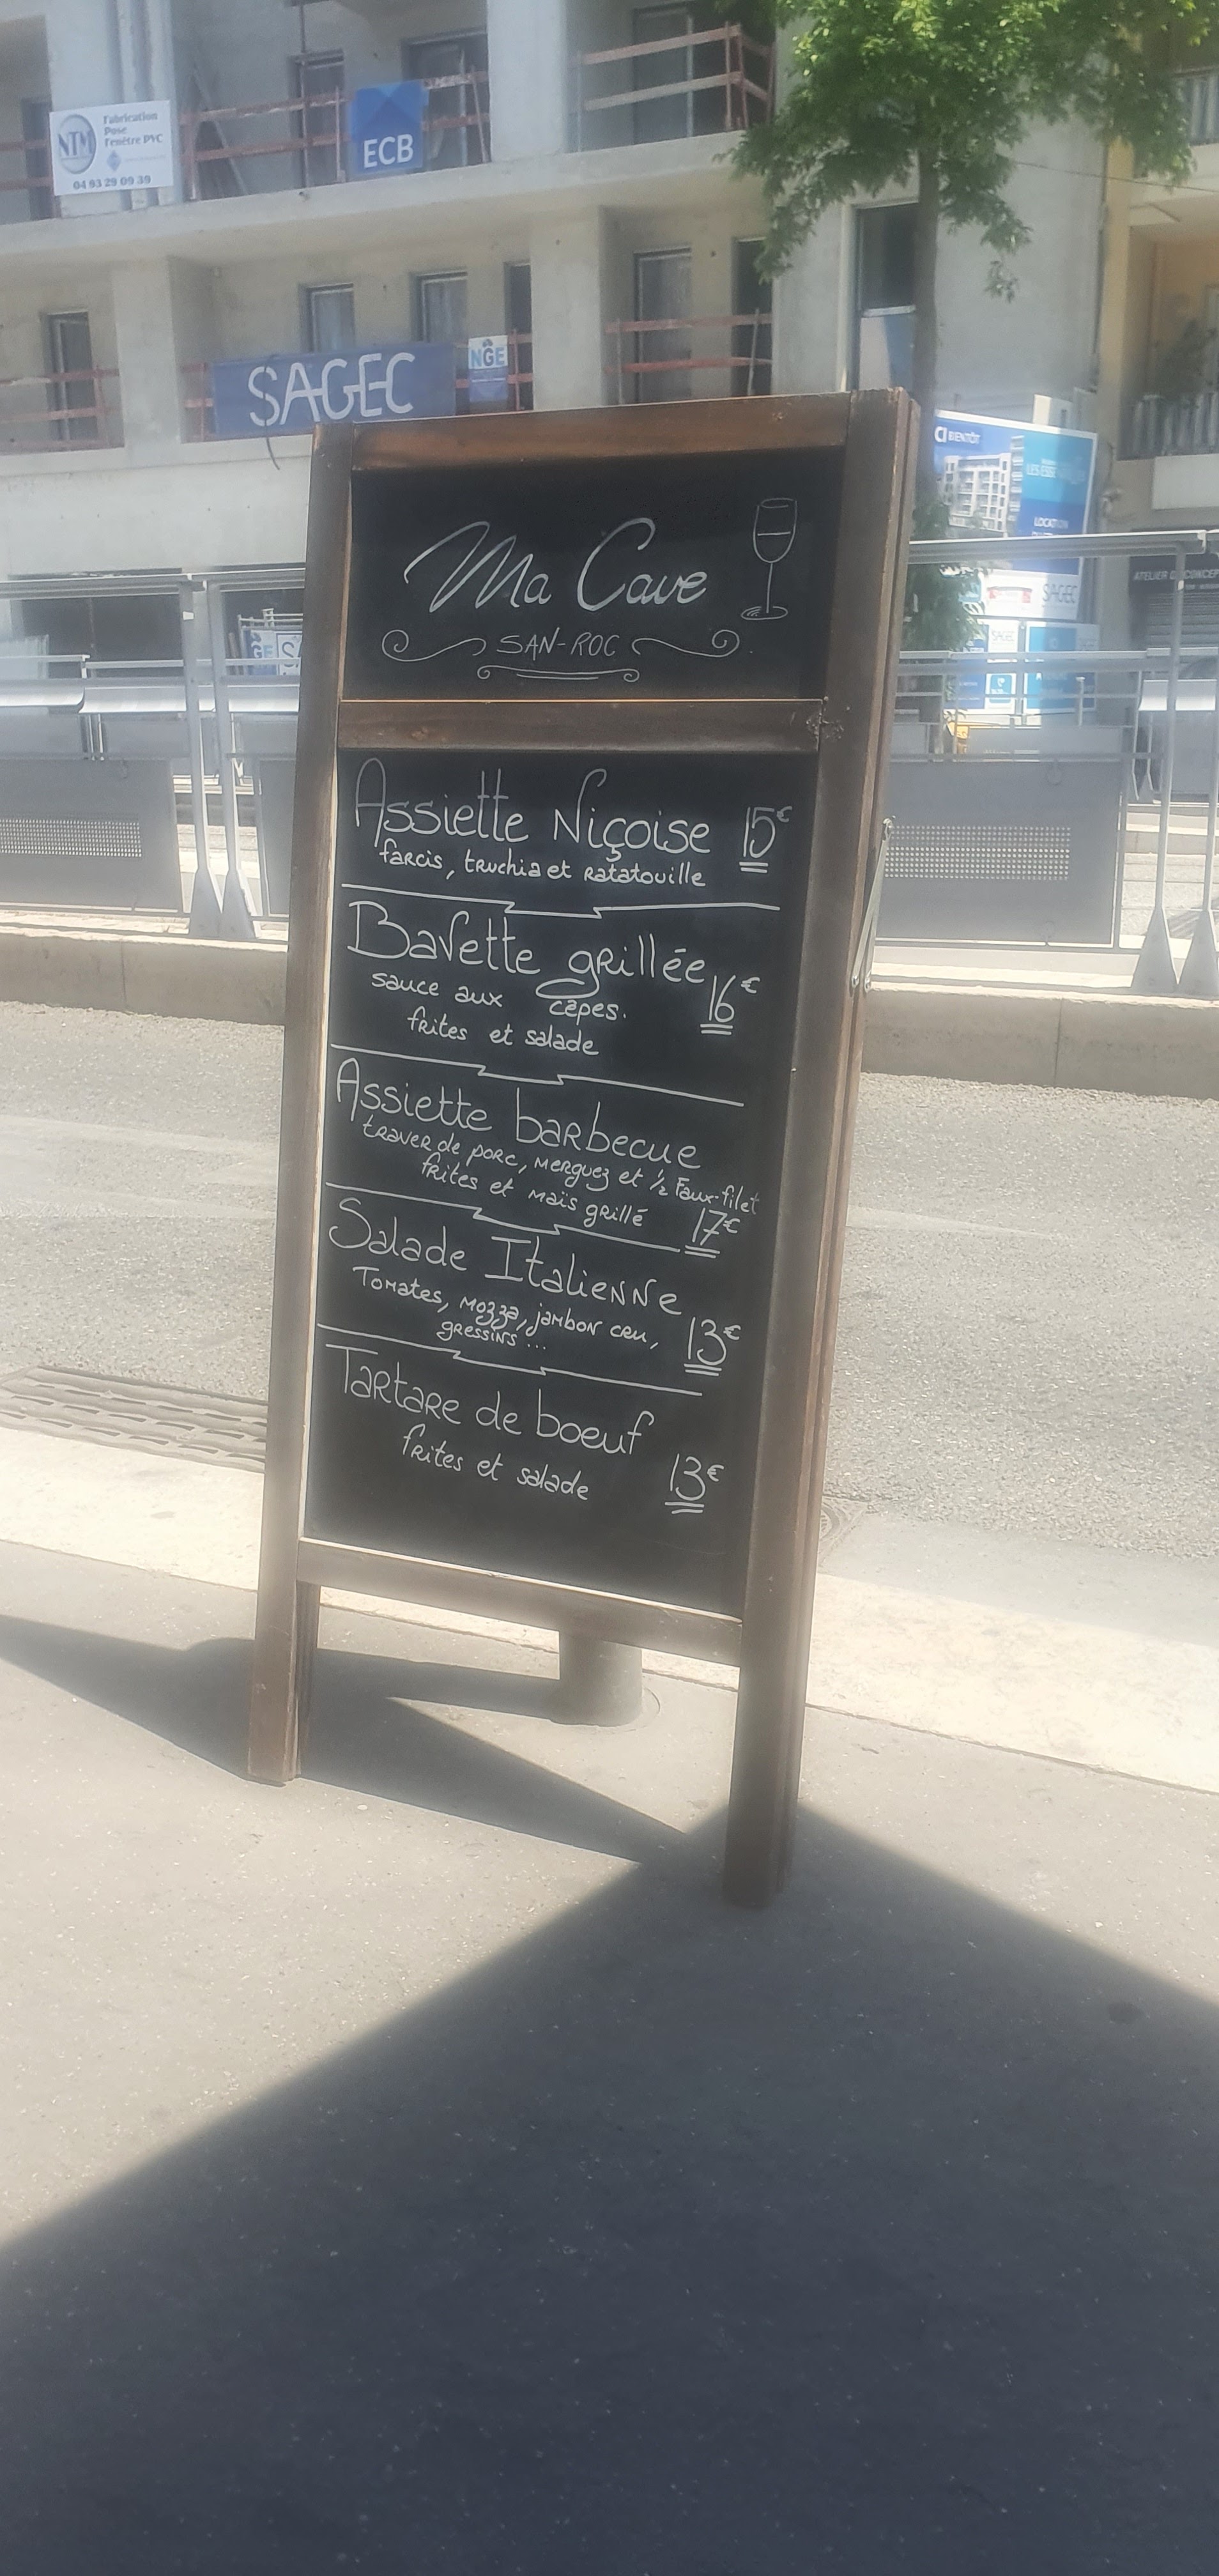 NTM
Fabrication
Pose
Fenêtre PVC
04 93 29 09 39
ECB
SAGEC
NGE
BIENTÔT
LOCATION
ATELIER D CONCEP
SAGEC
Ma Cave
SAN-ROC
Assiette Niçoise 15€
farcis, truchia et ratatouille
Bavette grillée
sauce aux cèpes. 16€
frites et salade
Assiette barbecue
traver de porc, merguez et 1/2 Faux-filet
frites et maïs grillé 17€
Salade Italienne
Tomates, mozza, jambon cru, 13€
gressins ...
Tartare de boeuf
frites et salade 13€